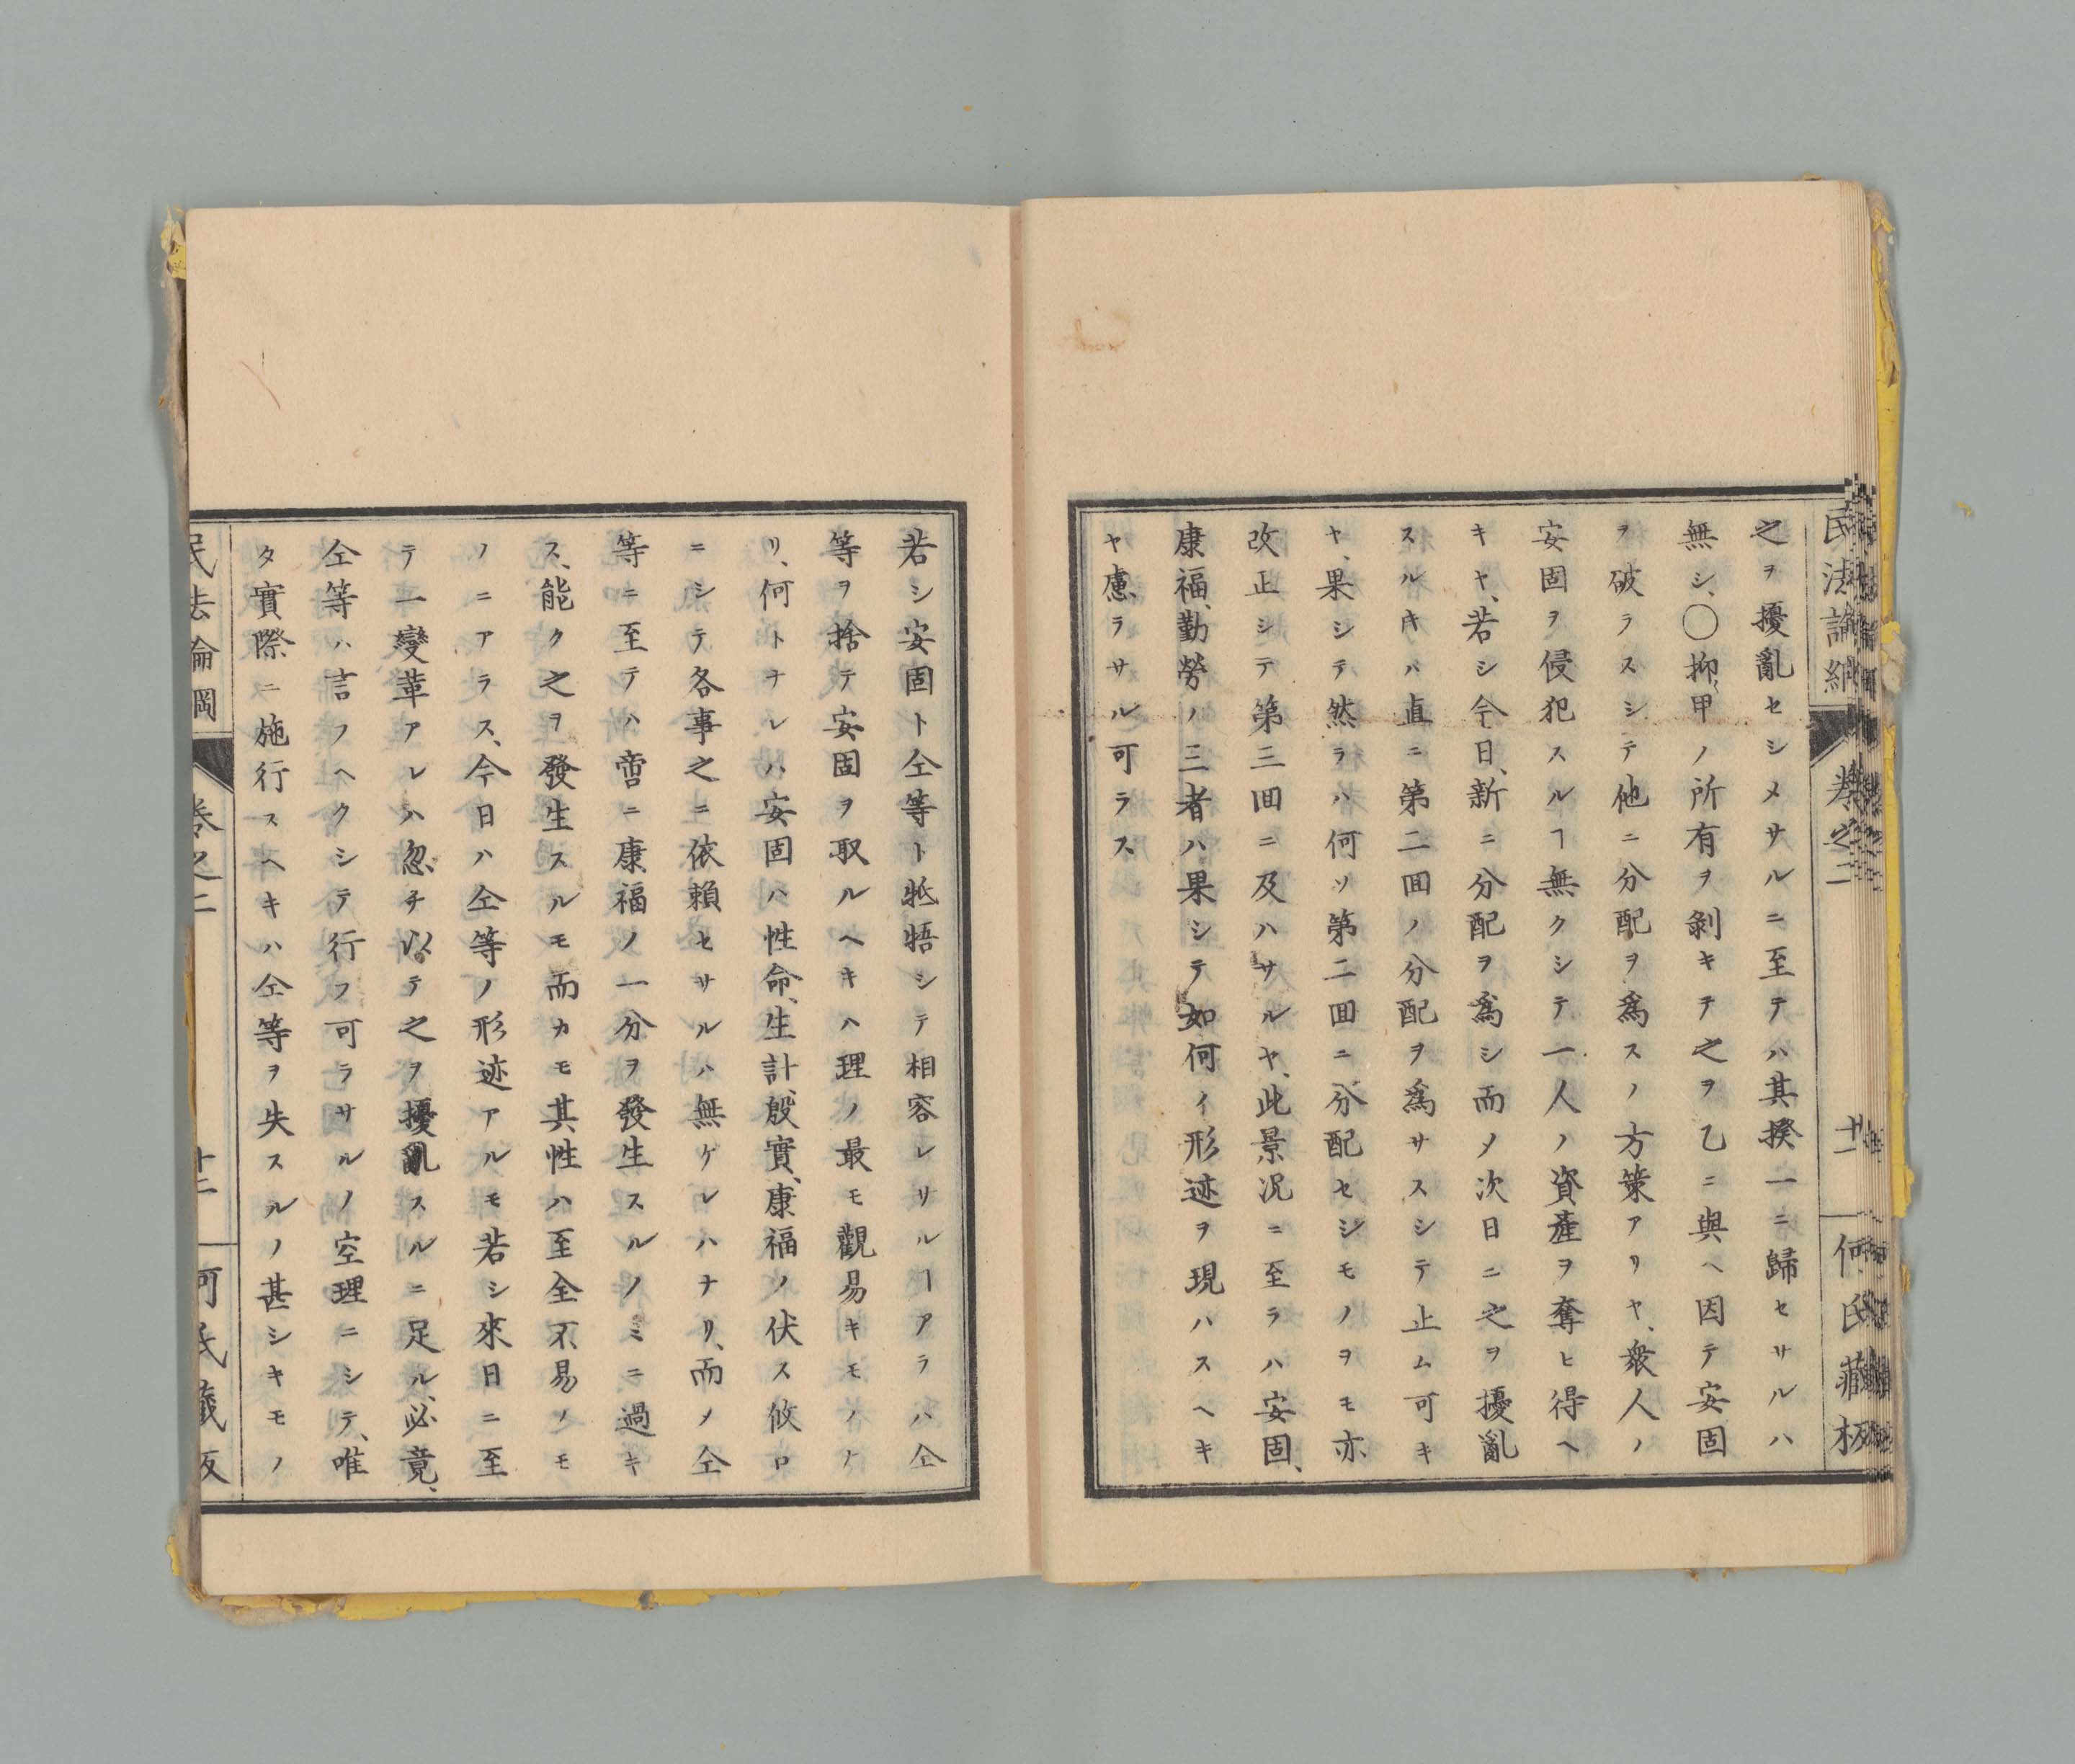 民法論綱 卷之二 十一 何氏藏板
之ヲ擾亂セシメサルニ至テハ其揆一ニ歸セサルハ
無シ、〇抑、甲ノ所有ヲ剝キテ之ヲ乙ニ與ヘ因テ安固
ヲ破ラスシテ他ニ分配ヲ爲スノ方策アリヤ、衆人ノ
安固ヲ侵犯スルヿ無クシテ一人ノ資產ヲ奪ヒ得ヘ
キヤ、若シ今日、新ニ分配ヲ爲シ而メ次日ニ之ヲ擾亂
スルキハ直ニ第二囬ノ分配ヲ爲サスシテ止ム可キ
ヤ、果シテ然ラハ何ソ第二囬ニ分配セシモノヲモ亦
改正シテ第三囬ニ及ハサルヤ、此景況ニ至ラハ安固、
康福、勤勞ノ三者ハ果シテ如何イ形迹ヲ現ハスヘキ
ヤ慮、ラサル可ラス
若シ安固ト仝等ト牴牾シテ相容レサルヿアラハ仝
等ヲ捨テ安固ヲ取ルヘキハ理ノ最モ觀易キモノナ
リ、何トナレハ安固ハ性命、生計、殷實、康福ノ伏ス攸ロ
ニシテ各事之ニ依賴セサルハ無ケレハナリ、而メ仝
等ニ至テハ啻ニ康福ノ一分ヲ發生スルノミニ過キ
ス、能ク之ヲ發生スルモ而カモ其性ハ至全不易ノモ
ノニアラス、今日ハ仝等ノ形迹アルモ若シ來日ニ至
テ一變革アレハ忽チ以テ之ヲ擾亂スルニ足ル、必竟、
仝等ハ言フヘクシテ行フ可ラサルノ空理ニシテ、唯
タ實際ニ施行スヘキハ仝等ヲ失スルノ甚シキモノ
民法論綱 卷之二 十二 何氏藏板